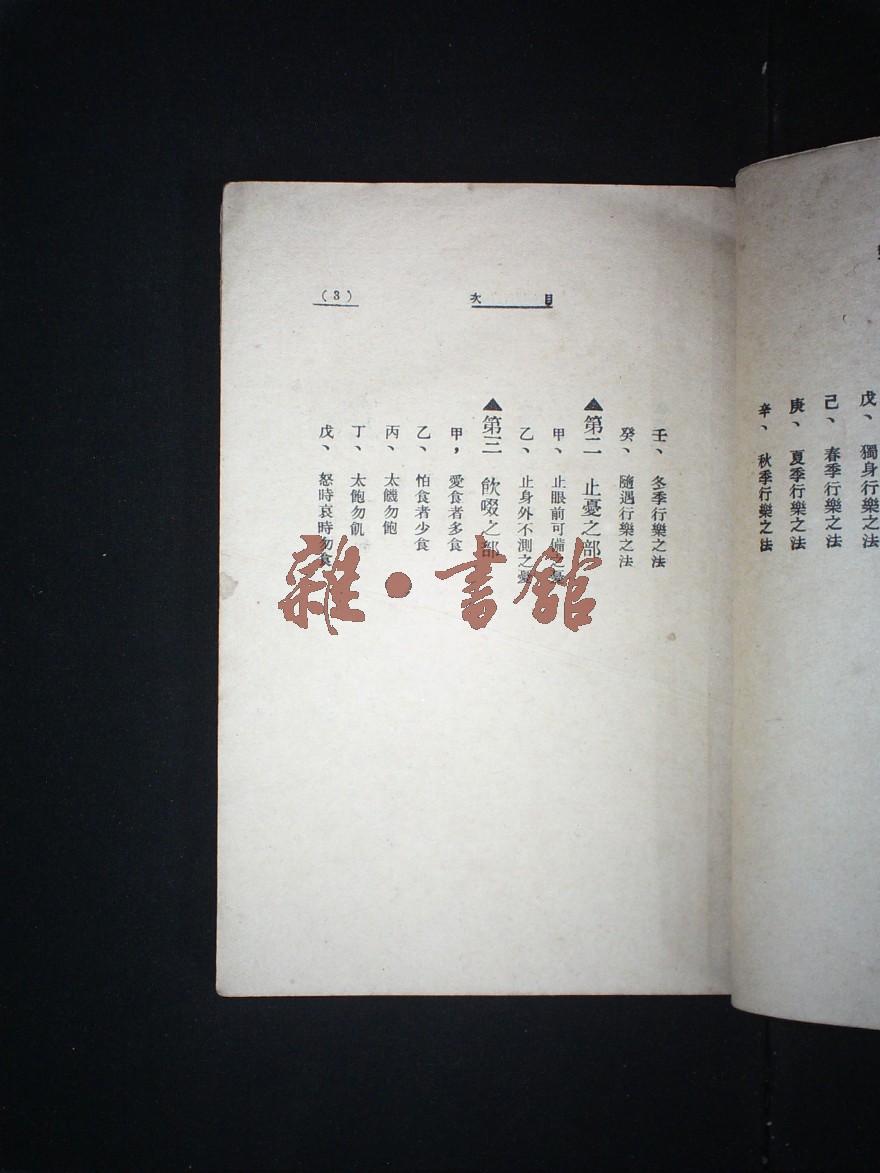 戊、獨身行樂之法
己、春季行樂之法
庚、夏季行樂之法
辛、秋季行樂之法
目次
(3)
壬、冬季行樂之法
癸、隨遇行樂之法
▲第二 止憂之部
甲、止眼前可備之憂
乙、止身外不測之憂
▲第三 飲啜之部
甲，愛食者多食
乙、怕食者少食
丙、太饑勿飽
丁、太飽勿飢
戊、怒時哀時勿食
雜·書館